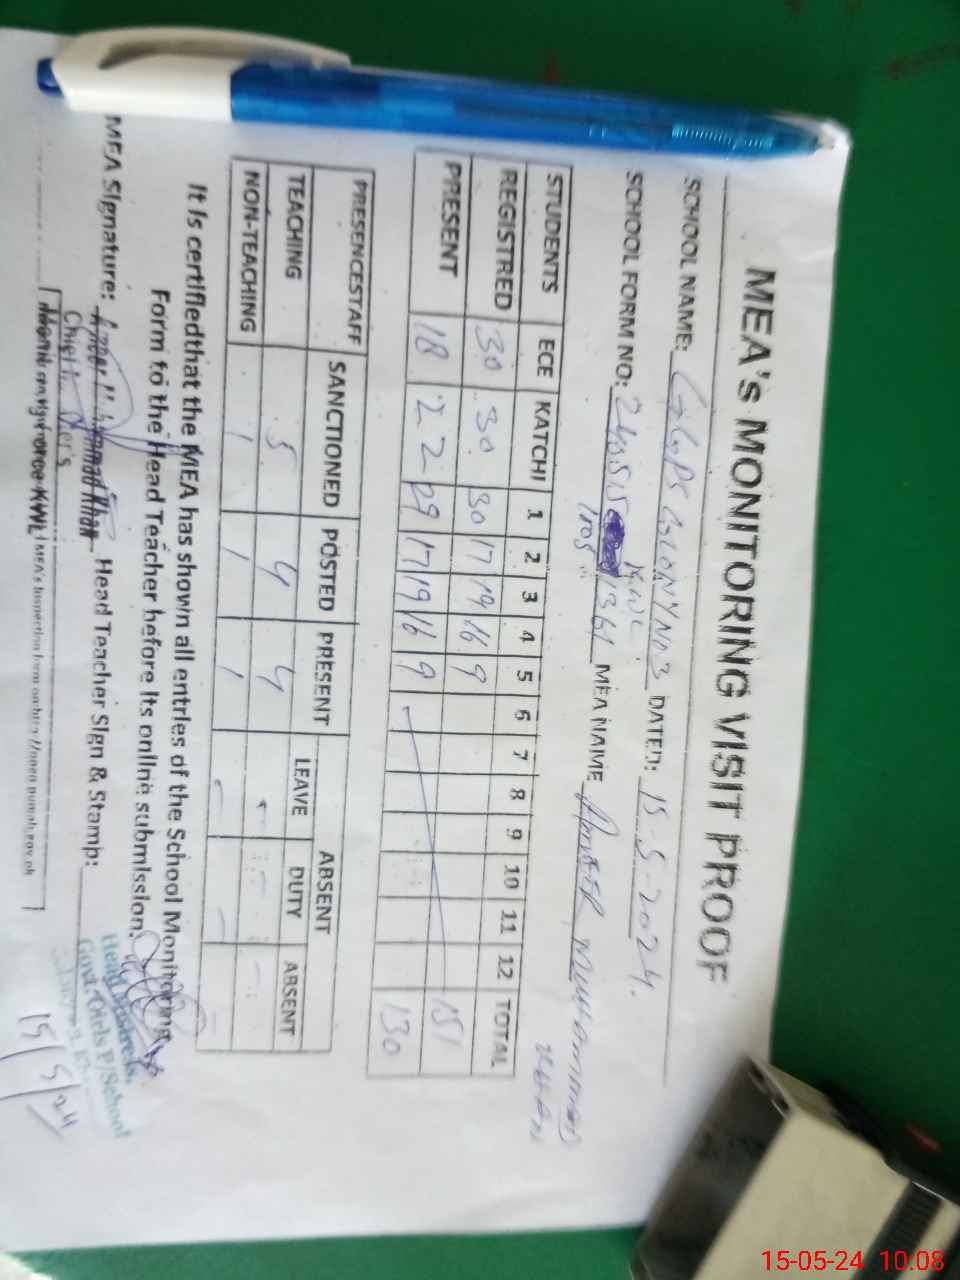 MEA's MONITORING VISIT PROOF
SCHOOL NAME: GGPS COLONY NO 3 KWL DATED: 15-5-2024.
SCHOOL FORM NO: 1361 MEA NAME AMEER MUHAMMAD KHAN
STUDENTS ECE KATCHI 1 2 3 4 5 6 7 8 9 10 11 12 TOTAL
REGISTRED 30 30 30 17 19 16 9 151
PRESENT 18 22 29 17 19 16 9 130
PRESENCESTAFF SANCTIONED POSTED PRESENT ABSENT
LEAVE DUTY ABSENT
TEACHING 5 4 4 - - -
NON-TEACHING 1 1 1 - - -
It is certifiedthat the MEA has shown all entries of the School Monitoring
Form to the Head Teacher before its online submission.
MEA Signature: Ameer Muhammad Khan Head Teacher Sign & Stamp:
Head Mistress
Govt. Girls P/School
15/5/24
15-05-24 10:08